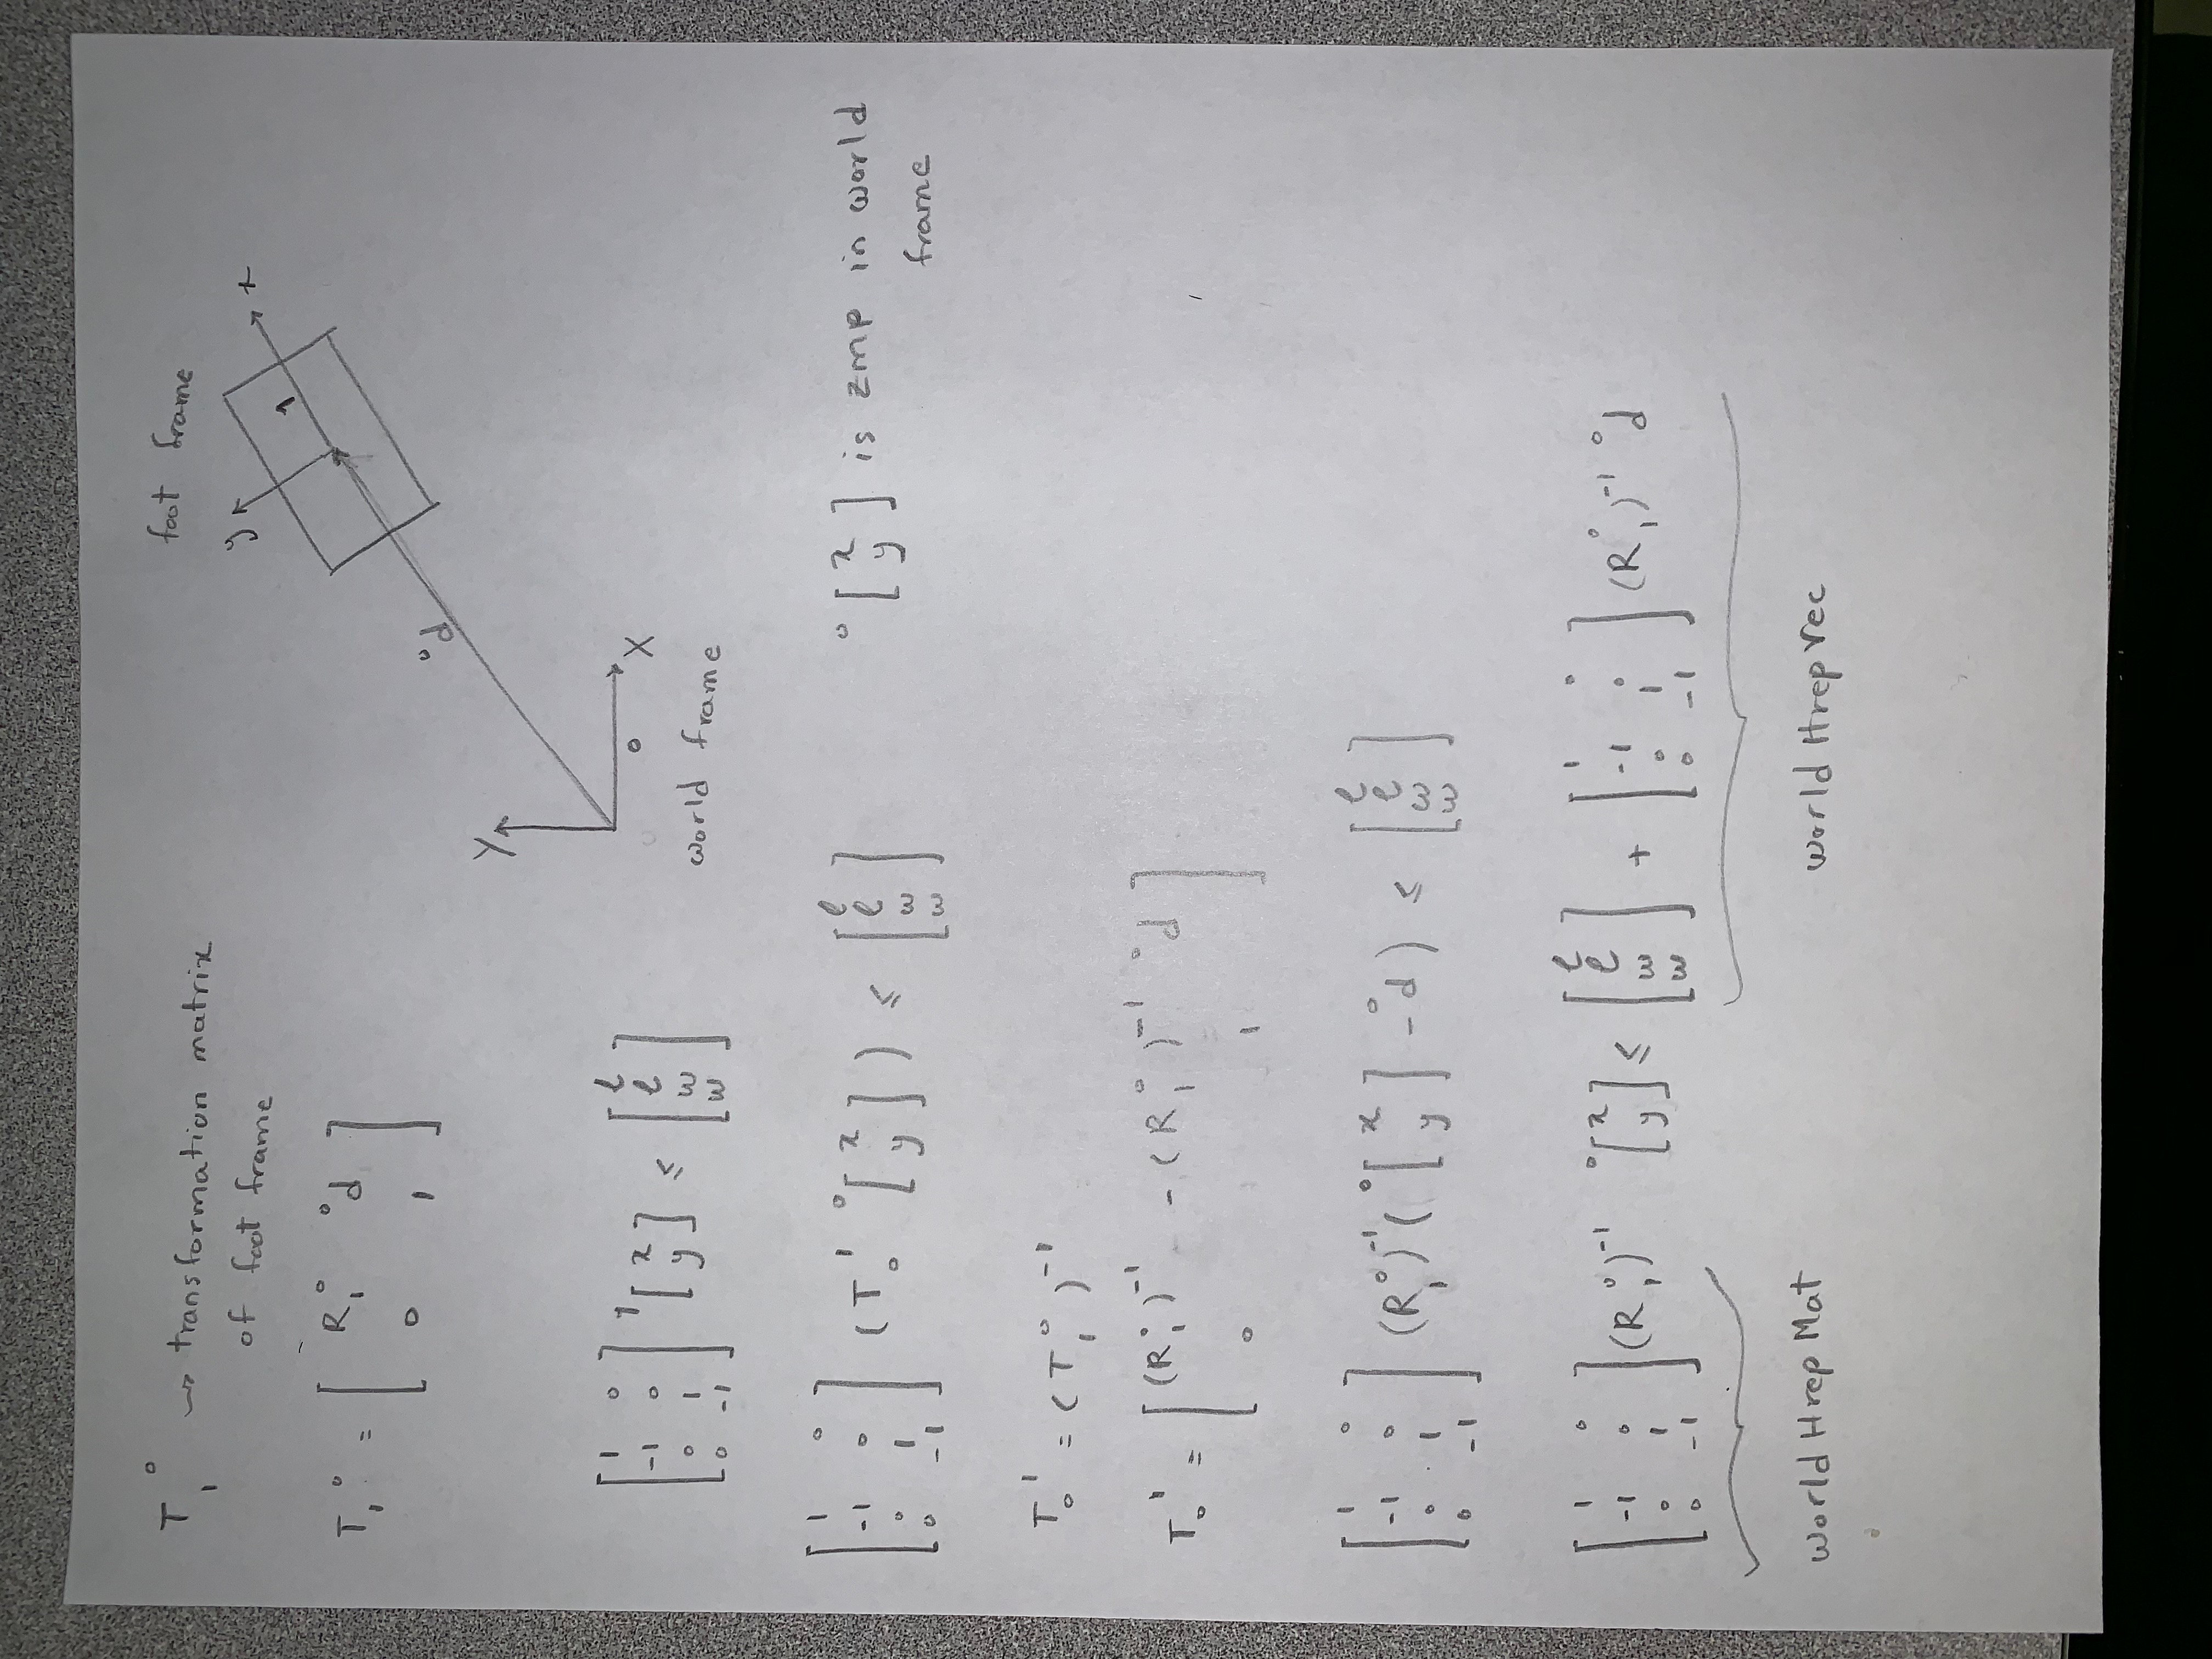 T₁⁰ ⤳ transformation matrix
of foot frame
foot frame
T₁⁰ = [ R₁⁰ ⁰d ; 0 1 ]
y
x
1
⁰d
Y
X
0
world frame
[ 1 0 ; -1 0 ; 0 1 ; 0 -1 ] ¹[ x ; y ] ≤ [ l ; l ; w ; w ]
[ 1 0 ; -1 0 ; 0 1 ; 0 -1 ] (T₀¹ ⁰[ x ; y ]) ≤ [ l ; l ; w ; w ]
⁰[ x ; y ] is zmp in world
frame
T₀¹ = (T₁⁰)⁻¹
T₀¹ = [ (R₁⁰)⁻¹ -(R₁⁰)⁻¹ ⁰d ; 0 1 ]
[ 1 0 ; -1 0 ; 0 1 ; 0 -1 ] (R₁⁰)⁻¹ (⁰[ x ; y ] - ⁰d) ≤ [ l ; l ; w ; w ]
[ 1 0 ; -1 0 ; 0 1 ; 0 -1 ] (R₁⁰)⁻¹ ⁰[ x ; y ] ≤ [ l ; l ; w ; w ] + [ 1 0 ; -1 0 ; 0 1 ; 0 -1 ] (R₁⁰)⁻¹ ⁰d
world Hrep Mat
world Hrep Vec